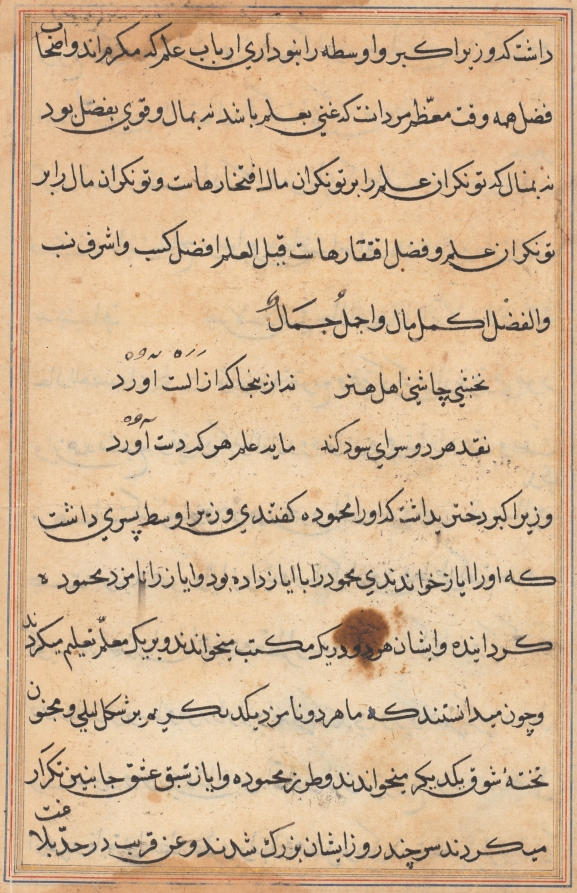 داشت که وزیر اکبر و اوسطه را بنوداری ارباب علم که مکرم اند و اصحاب
فضل همه وقت معظم مردانست که غنی بعلم باشد نه بمال و قوی بفضل بود
نه بمنال که تونکران علم را بر تونکران مال افتخارهاست و تونکران مال را بر
تونکران علم و فضل افتقارهاست قیل العلم افضل کسب و اشرف نسب
والفضل اکمل مال و اجمل جمال
نخشبی چاشنی اهل هنر نداز بنجا که از الست آورد
نقد هر دو سرای سود کند ماید علم هر که دست آورد
وزیر اکبر دختر یداشت که او را محموده کفتندی و وزیر اوسط پسری داشت
که او را ایاز خواندندی محمود را با ایاز داده بود و ایاز را نامزد محموده
کردانیده و ایشان هر دو در یک مکتب میخواندند و بر یک معلم تعلیم میکردند
و چون میدانستند که ما هر دو نامزد یکدیکریم بر شکل لیلی و مجنون
تختهٔ شوق یکدیکر میخواندند و طرز محموده و ایاز سبق عشق جانبین تکرار
میکردند سر چند روز ایشان بزرک شدند و عن قریب در حد بلاغت